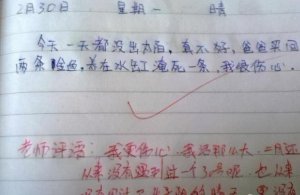 2月30日 星期一 晴
今天一天都没出太阳，真不好，爸爸买回
两条鲸鱼，养在水缸淹死一条，我很伤心。
老师评语：我更伤心，我活那么大，二月还
从来没有遇到过一个30号呢，也从来